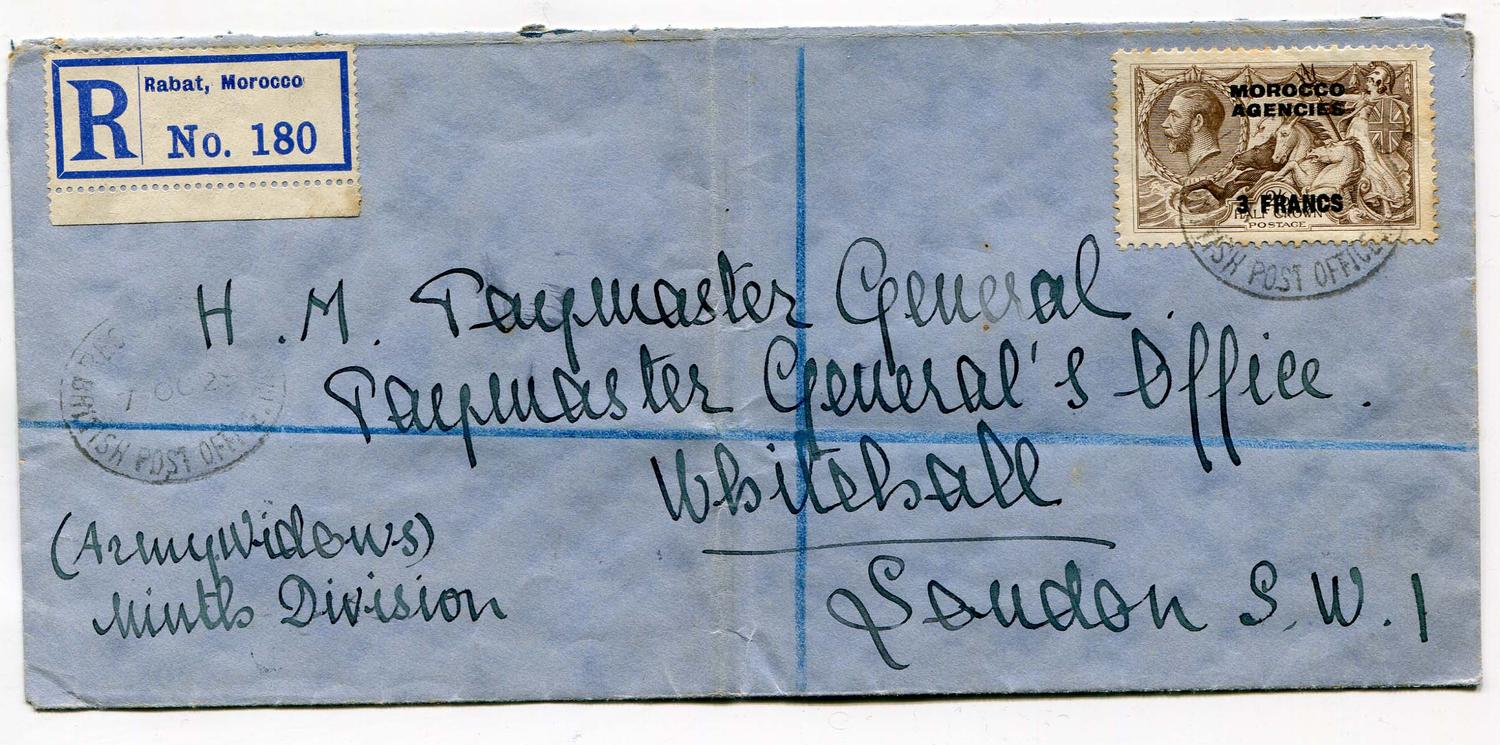 R
Rabat, Morocco
No. 180
MOROCCO
AGENCIES
3 FRANCS
HALF CROWN
POSTAGE
POST OFFICE
H. M. Paymaster General.
Paymaster General's Office.
Whitehall
London S. W. 1
BRITISH POST OFFICE
7 OC
(Army Widows)
Ninth Division